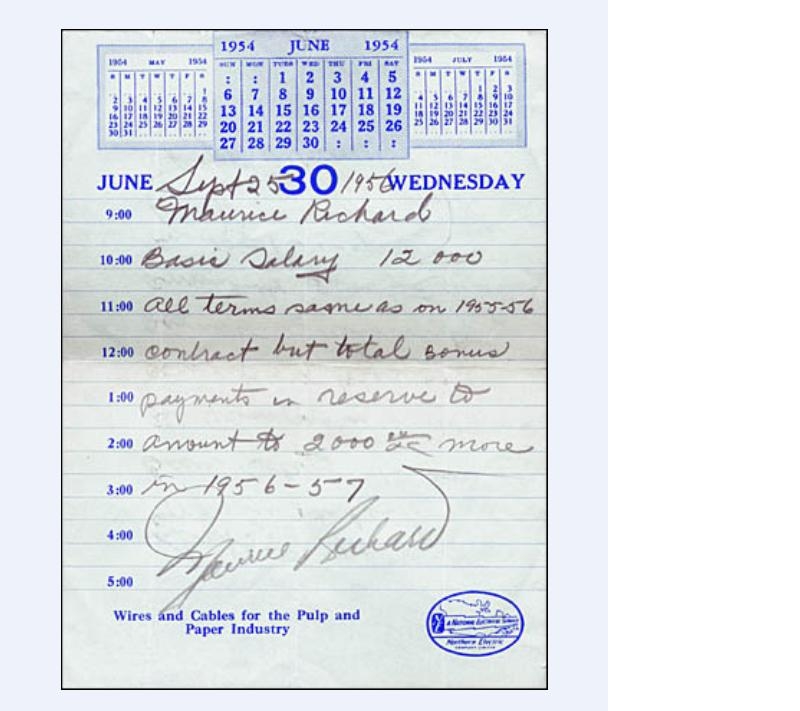 1954 JUNE 1954
1954 MAY 1954
S M T W T F S
1
2 3 4 5 6 7 8
9 10 11 12 13 14 15
16 17 18 19 20 21 22
23 24 25 26 27 28 29
30 31
SUN MON TUES WED THU FRI SAT
: : 1 2 3 4 5
6 7 8 9 10 11 12
13 14 15 16 17 18 19
20 21 22 23 24 25 26
27 28 29 30 : : :
1954 JULY 1954
S M T W T F S
1 2 3
4 5 6 7 8 9 10
11 12 13 14 15 16 17
18 19 20 21 22 23 24
25 26 27 28 29 30 31
JUNE Sept 25 30 /1956 WEDNESDAY
9:00 Maurice Richard
10:00 Basic Salary 12 000
11:00 All terms same as on 1955-56
12:00 contract but total bonus
1:00 payments in reserve to
2:00 amount to 2000 more
3:00 in 1956-57
4:00 Maurice Richard
5:00
Wires and Cables for the Pulp and
Paper Industry
A NATIONAL ELECTRICAL SERVICE
Northern Electric
COMPANY LIMITED